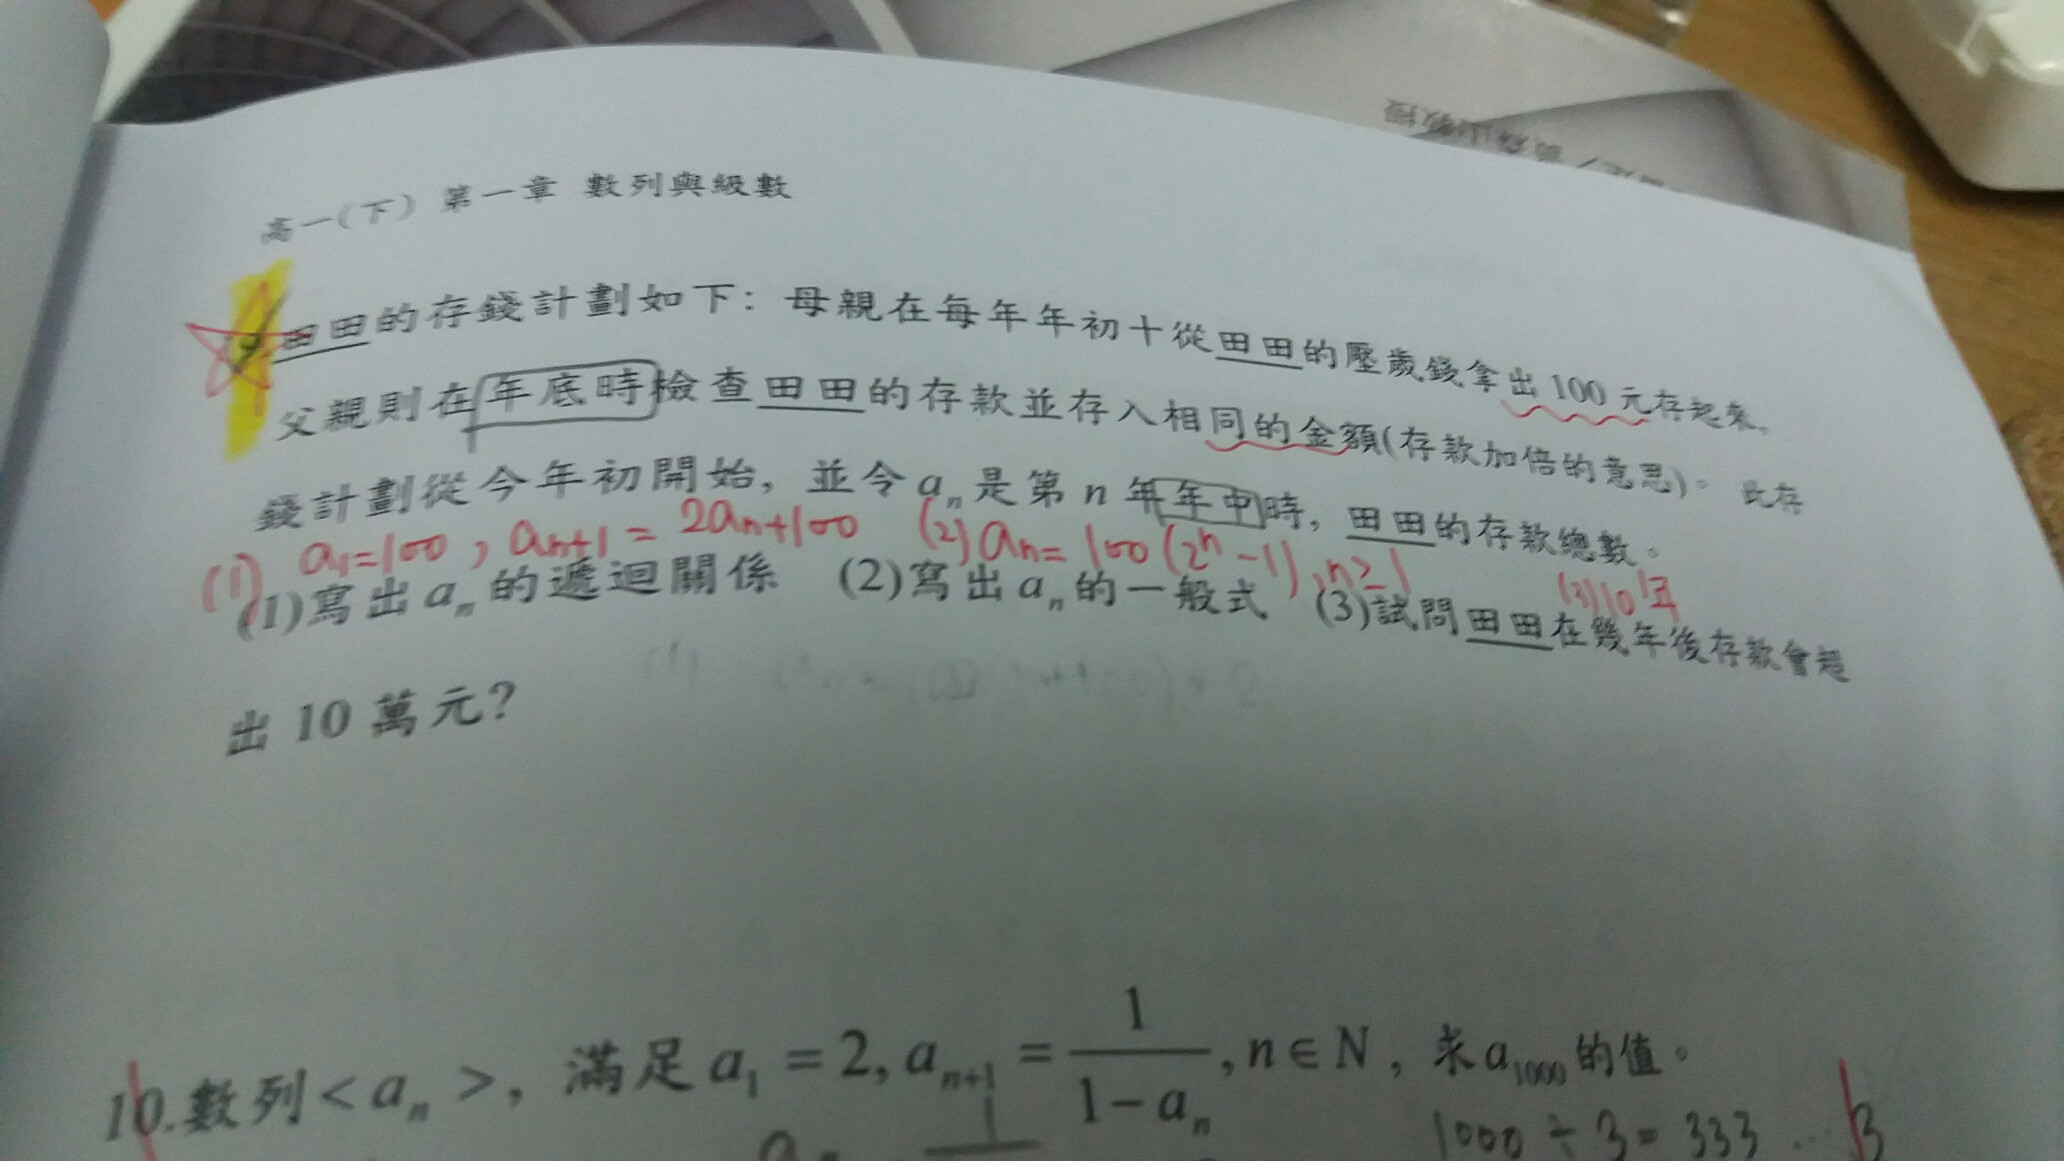 森山教授
高一(下) 第一章 數列與級數
9.田田的存錢計劃如下：母親在每年年初十從田田的壓歲錢拿出100元存起來，
父親則在年底時檢查田田的存款並存入相同的金額(存款加倍的意思)。此存
錢計劃從今年初開始，並令aₙ是第n年年中時，田田的存款總數。
(1) a₁=100, aₙ₊₁=2aₙ+100 (2) aₙ=100(2ⁿ-1), n≥1 (3)10年
(1)寫出aₙ的遞迴關係 (2)寫出aₙ的一般式 (3)試問田田在幾年後存款會超
出10萬元?
10.數列<aₙ>，滿足a₁=2, aₙ₊₁=1/(1-aₙ), n∈N，求a₁₀₀₀的值。
1000÷3=333…